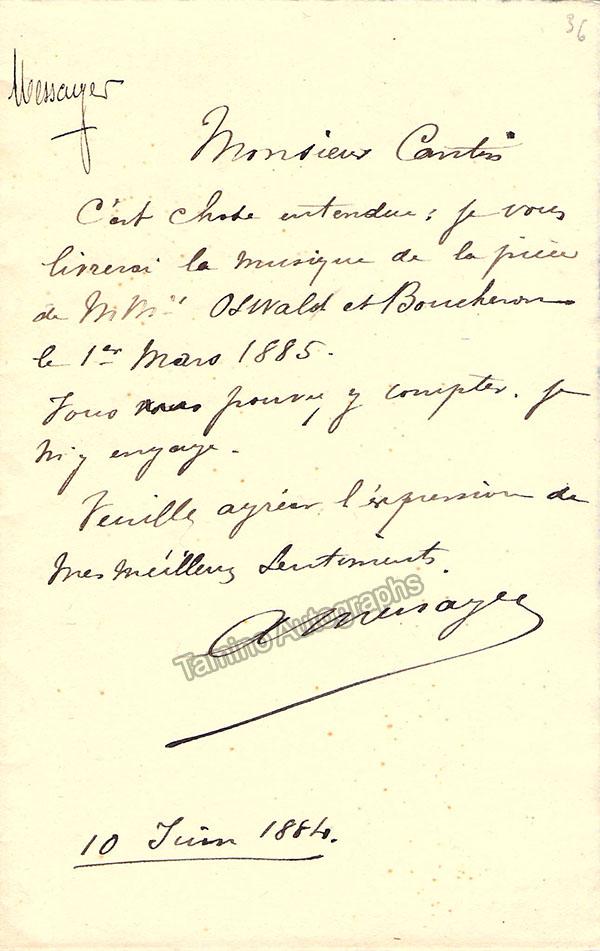 36
Messager
Monsieur Cantin
C'est chose entendue; je vous
livrerai la musique de la pièce
de MMrs Oswald et Boucheron
le 1er Mars 1885.
Vous pouvez y compter. Je
m'y engage.
Veuillez agréer l'expression de
mes meilleurs sentiments.
A Messager
Tamino Autographs
10 Juin 1884.